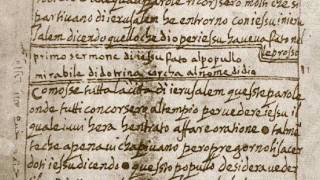 partivano di ierusalem he entrorno con iesu in ieru
salem dicendo quello che dio per iesu havea fato nel
leproso
primo sermone di iesu fato al popullo
mirabile di dotrina circha al nome di dio
Comosse tutta la cita di ierusalem queste parole
onde tutti concorsero al tempio per vedere iesu il
quale iui hera hentrato affare oratione
te che apena ui chapiuano pero pregorno li sacer
doti iesu dicendo questo populo desidera vede